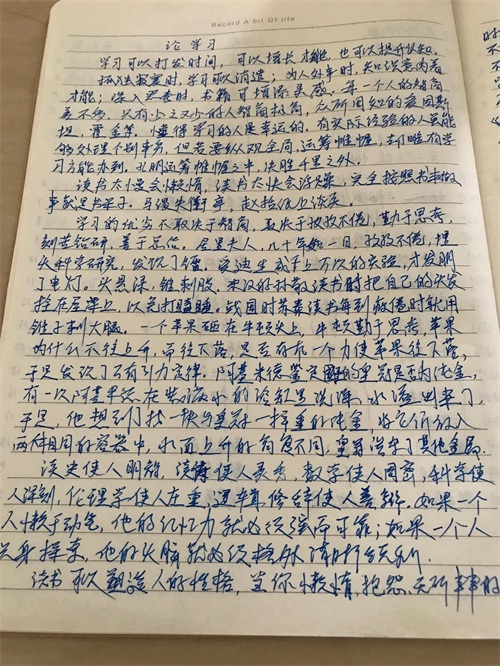 Record A bit Of Life
论学习
学习可以打发时间，可以增长才能，也可以提升认知。
孤独寂寞时，学习可以消遣；为人处事时，知识意味着
才能；深入思考时，书籍可增添灵感。每一个人的智商
差不多，只有少之又少的人智商极高，众所周知的爱因斯
坦，霍金等。懂得学习的人是幸运的，有实际经验的人虽能
够处理个别事务，但若要纵观全局，运筹帷幄，却唯有学
习方能办到。
读书太慢会惰，读书太快会浮躁，完全按照书本做
事就是书呆子。马谡失街亭，赵括纸上谈兵。
学习的优劣不取决于智商，取决于孜孜不倦，勤于思考，
刻苦钻研，善于总结。居里夫人，几十年如一日，孜孜不倦，埋
头科学研究，发现了镭。爱迪生成千上万次的实验，才发明
了电灯。头悬梁，锥刺股，末汉的孙敬读书时把自己的头发
拴在屋梁上，以免打瞌睡。战国时苏秦读书每到疲倦时就用
锥子刺大腿。一个苹果砸在牛顿头上，牛顿勤于思考，苹果
为什么不往上升，而往下落，是否存在一个力使苹果往下落，
于是发现了万有引力定律。阿基米德鉴定国王的皇冠是否为纯金，
有一次阿基米德在装满水的浴缸里洗澡，水溢出来了，
于是，他想到找一块与皇冠一样重的纯金，将它们放入
两个相同的容器中，水面上升的高度不同，皇冠混杂了其他金属。
读史使人明智，读诗使人灵秀，数学使人周密，科学使
人深刻，伦理学使人庄重，逻辑修辞使人善辩。如果一个
人懒于动笔，他的记忆力就必须强而可靠；如果一个人
他的头脑就必须格外
读书可以塑造人的性格，当你懒惰，抱怨，无所事事时